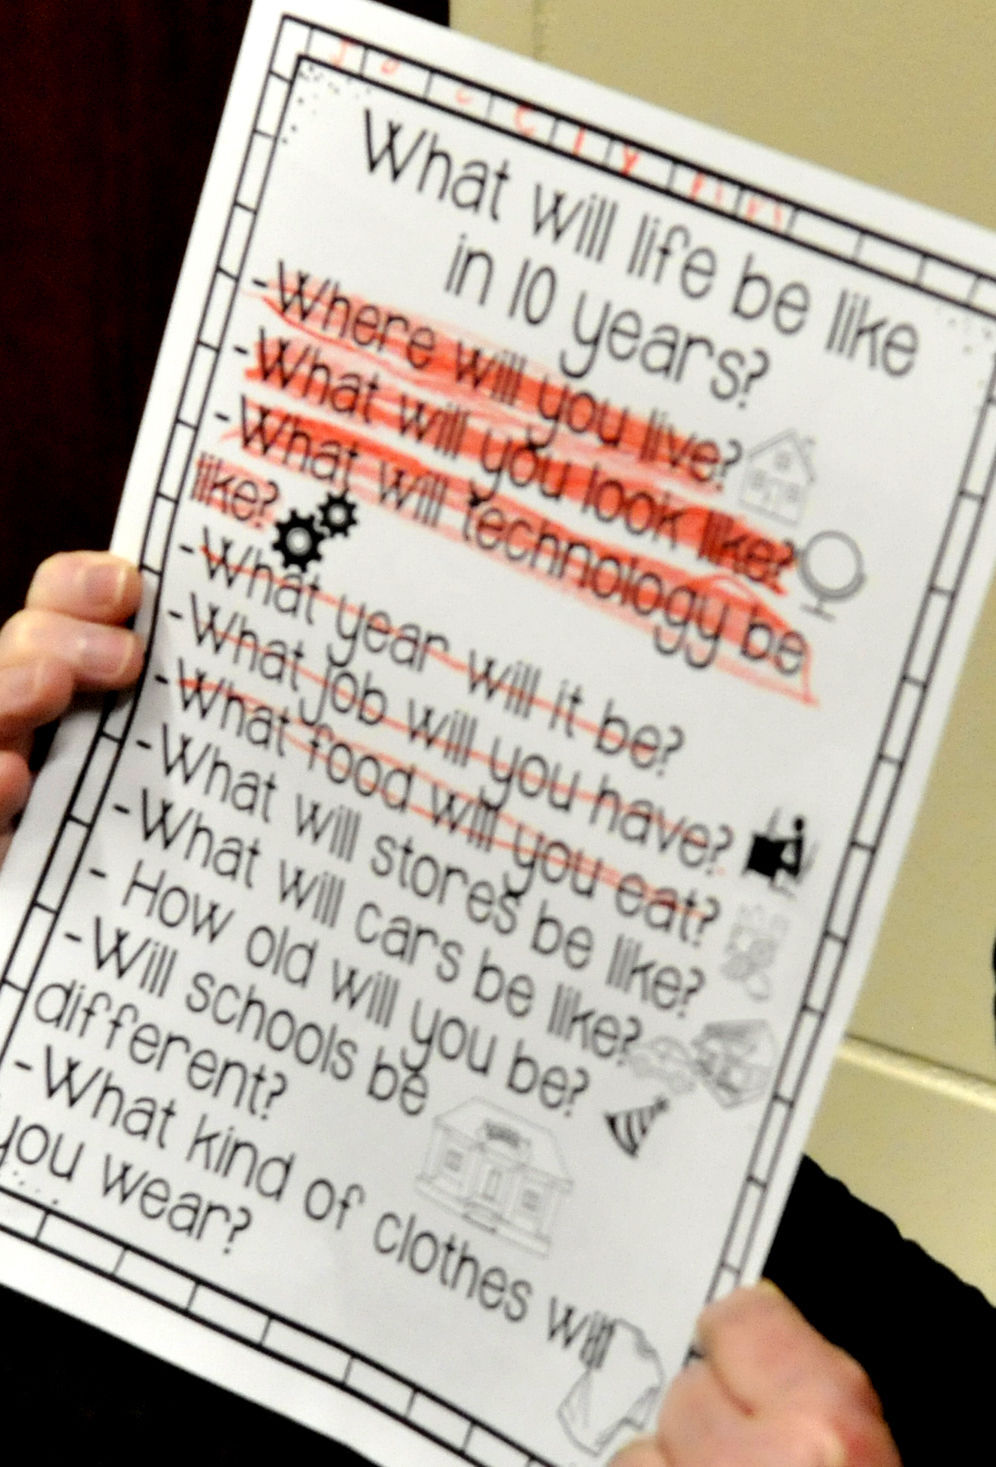 What will life be like
in 10 years?
-Where will you live?
-What will you look like?
-What will technology be
like?
-What year will it be?
-What job will you have?
-What food will you eat?
-What will stores be like?
-What will cars be like?
- How old will you be?
-Will schools be
different?
-What kind of clothes will
you wear?